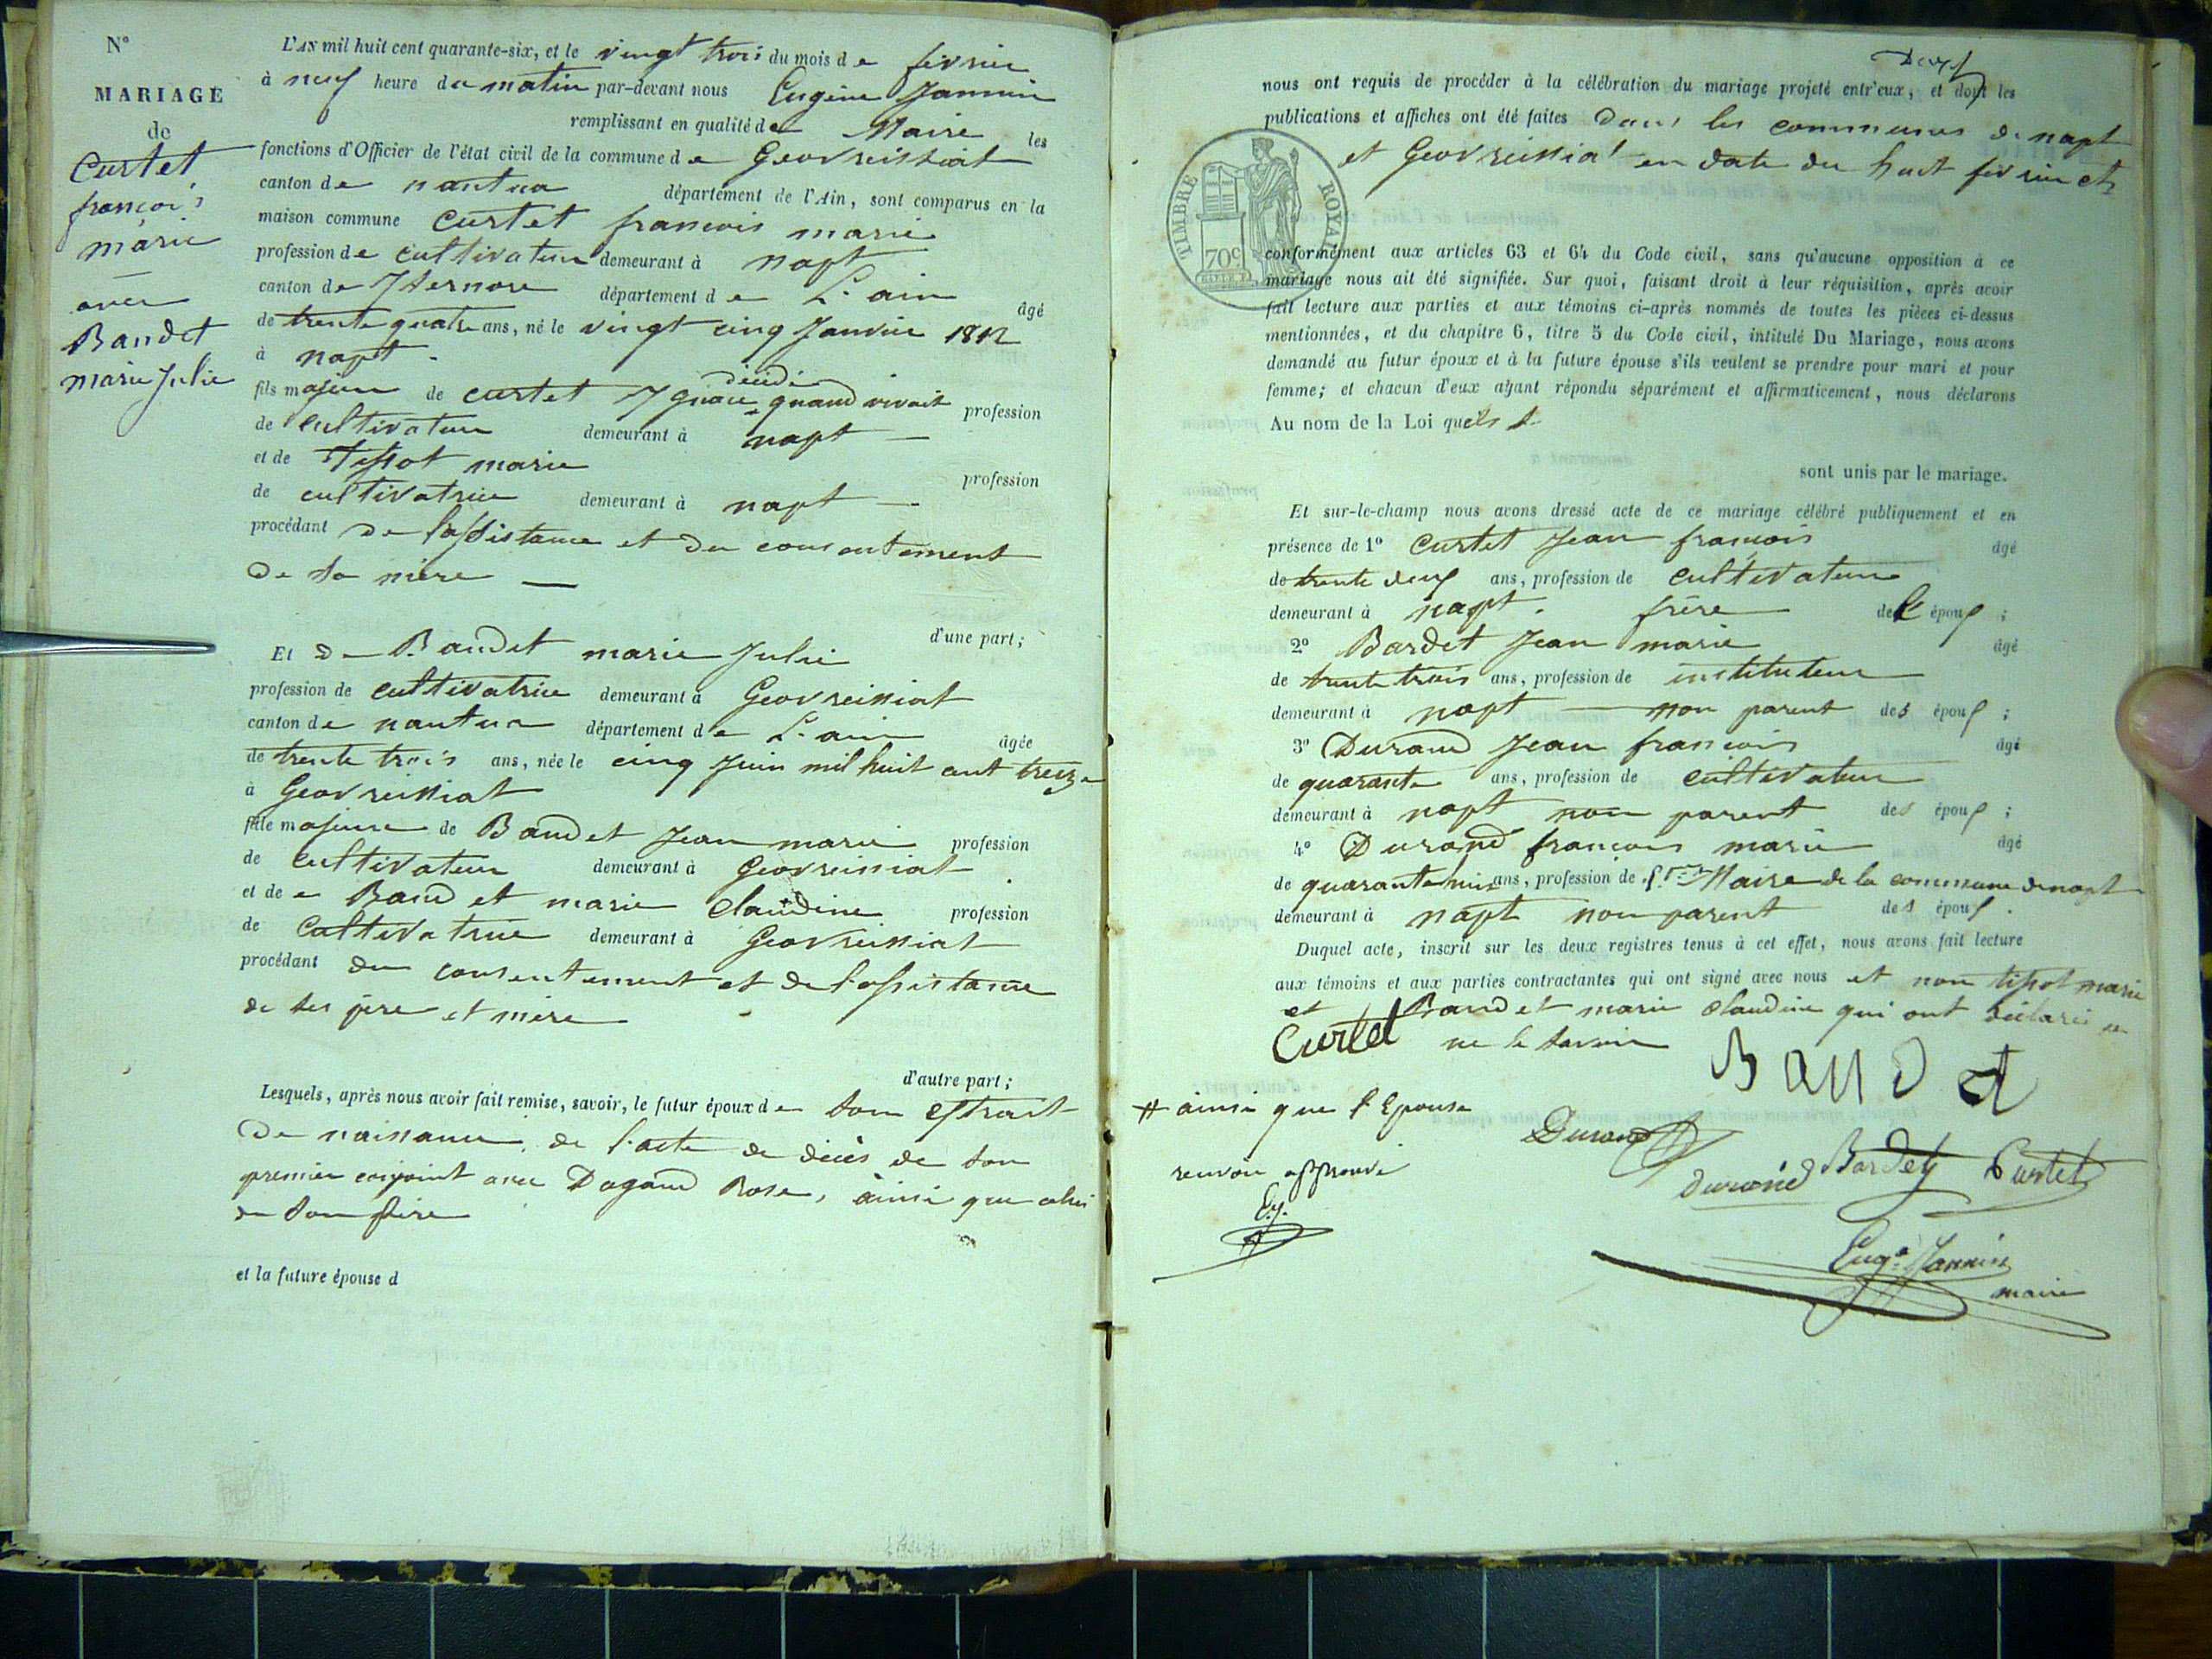 N°
MARIAGE
de
Curtet
françois
marie
—
avec
Baudet
marie Julie
L'AN mil huit cent quarante-six, et le vingt trois du mois de fevrier
à neuf heure du matin par-devant nous Eugène Jannin
remplissant en qualité de Maire les
fonctions d'Officier de l'état civil de la commune de Geovreissiat
canton de nantua département de l'Ain, sont comparus en la
maison commune Curtet francois marie
profession de cultivateur demeurant à napt
canton de Izernore département de L'ain âgé
de trente quatre ans, né le vingt cinq Janvier 1812
à napt
décédé
fils majeur de curtet Ignace quand vivait profession
de cultivateur demeurant à napt —
et de Tissot marie profession
de cultivatrice demeurant à napt —
procédant de l'assistance et du consentement
de sa mère —
d'une part;
Et de Baudet marie Julie
profession de cultivatrice demeurant à Geovreissiat
canton de nantua département de L'ain âgée
de trente trois ans, née le cinq Juin mil huit cent treize
à Geovreissiat
fille majeure de Baudet Jean marie profession
de cultivateur demeurant à Geovreissiat
et de Baudet marie Claudine profession
de Cultivatrice demeurant à Geovreissiat
procédant du consentement et de l'assistance
de ses père et mère
d'autre part;
Lesquels, après nous avoir fait remise, savoir, le futur époux de son extrait
de naissance, de l'acte de décès de son
premier conjoint avec Dagand Rose, ainsi que celui
de son père
et la future épouse d
Deux
nous ont requis de procéder à la célébration du mariage projeté entr'eux, et dont les
publications et affiches ont été faites dans les communes de napt
et Geovreissiat en date du huit fevrier et
TIMBRE ROYAL
70c
conformément aux articles 63 et 64 du Code civil, sans qu'aucune opposition à ce
mariage nous ait été signifiée. Sur quoi, faisant droit à leur réquisition, après avoir
fait lecture aux parties et aux témoins ci-après nommés de toutes les pièces ci-dessus
mentionnées, et du chapitre 6, titre 5 du Code civil, intitulé Du Mariage, nous avons
demandé au futur époux et à la future épouse s'ils veulent se prendre pour mari et pour
femme; et chacun d'eux ayant répondu séparément et affirmativement, nous déclarons
Au nom de la Loi qu'ils
sont unis par le mariage.
Et sur-le-champ nous avons dressé acte de ce mariage célébré publiquement et en
présence de 1° Curtet Jean françois âgé
de trente deux ans, profession de cultivateur
demeurant à napt. frère de l'époux ;
2° Bardet Jean marie âgé
de trente trois ans, profession de instituteur
demeurant à napt — non parent des époux ;
3° Durand Jean francois âgé
de quarante ans, profession de cultivateur
demeurant à napt non parent des époux ;
4° Durand francois marie âgé
de quarante ans, profession de Maire de la commune de napt
demeurant à napt non parent des époux.
Duquel acte, inscrit sur les deux registres tenus à cet effet, nous avons fait lecture
aux témoins et aux parties contractantes qui ont signé avec nous et non tissot marie
et Baudet marie Claudine qui ont déclaré
ne le savoir
Curtet
Baudet
# ainsi que l'Epouse
renvoi approuvé
E.J.
Durand
durand Bardet Curtet
Eug.e Jannin
maire